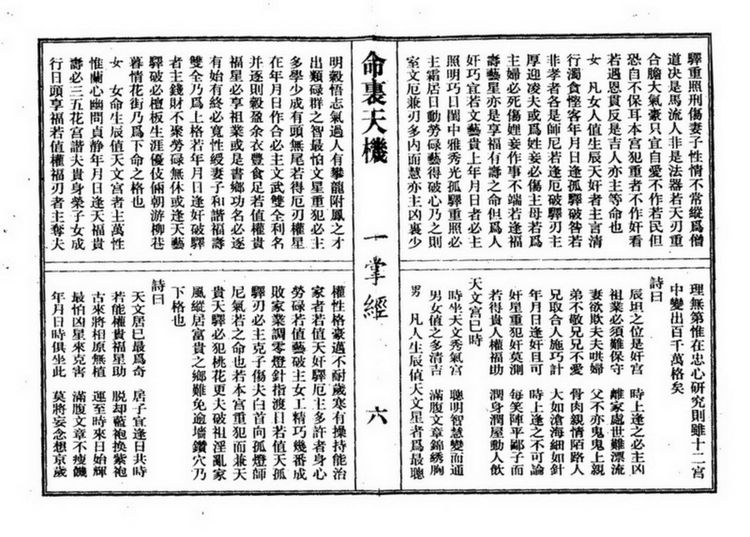 驛重照刑傷妻子性情不常縱為僧
道決是馬流人非是法器若天刃重
合膽大氣豪只宜自愛不作若民但
恐自不保耳本宮犯重者不作奸看
若遇恩貫反是吉人亦主等命也
女　凡女人值生辰天奸者主言清
行濁食慳客年月日逢孤驛破咎若
非孝者各是師尼若逢厄破驛刃主
厚迎凌夫或為姓妾必傷主母若為
主婦必死傷娌妾作事不端若逢福
壽藝星亦是享福有壽之命但為人
奸巧宜若文藝貴上年月日者必主
照明巧日閨中雅秀光孤驛重照必
主霜居日動勞碌藝得破心乃之則
室文厄兼刃多內而慧亦主凶裏少
理無第惟在忠心研究則雖十二宮
中變出百千萬格矣
詩曰
辰垣之位是奸宮　時上逢之必主凶
祖業必須難保守　離家處世難漂流
妻欲欺夫夫哄婦　父不亦鬼鬼上親
弟不敬兄兄不愛　骨肉親情陌路人
兄取合人施巧計　大如滄海細如針
年月日逢奸且可　時上逢之不可論
奸星重犯奸莫測　每笑陳平鄙子而
若得貴人權福助　潤身潤屋動人飲
天文宮巳時
時坐天文秀氣宮　聰明智慧變而通
男女值之多清吉　滿腹文章錦綉胸
男　凡人生辰值天文星者為最聰
命裏天機　一掌經　六
明穀悟志氣過人有攀龍附鳳之才
出類碌群之智最怕文星重犯必主
多學少成有頭無尾若得厄刃權星
在年月日作合必主文武雙全利名
并逐則穀盈余衣豐食足若值權貴
福星必享祖業或是書鄉功名必逐
有始有終必寬性緩妻子和諧福壽
雙全乃為上格若年月日逢奸破驛
者主錢財不聚勞碌無休或逢天藝
驛破必檀板生涯優伎倆朝游柳巷
暮情花街乃為下命之格也
女　女命生辰值天文宮者主萬性
惟蘭心幽問貞靜年月日逢天福貴
壽必三五花宮諧夫貴身榮子女成
行日頭享福若值權福刃者主奪夫
權性格豪邁不耐歲寒有操持能治
家者若值天奸驛厄主多許者身心
勞碌若值藝破主女工精巧幾番成
敗家業調零燈針指渡日若值天孤
驛刃必主克子傷夫白首向孤燈師
尼氣若之命也若本宮重犯而兼天
貴天驛必犯桃花更夫破祖淫亂家
風縱居富貴之鄉難免逾墻鑽穴乃
下格也
詩曰
天文居巳最為奇　居子宜逢日共時
若能權貴福星助　脫却藍袍換紫袍
古來將相原無植　運至時來日始輝
最怕凶星來克害　滿腹文章不瘦饑
年月日時俱坐此　莫將妄念想京歲